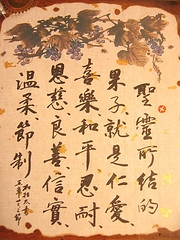 聖靈所結的
果子就是仁愛、
喜樂和平忍耐
恩慈良善信實
溫柔節制
加拉太書